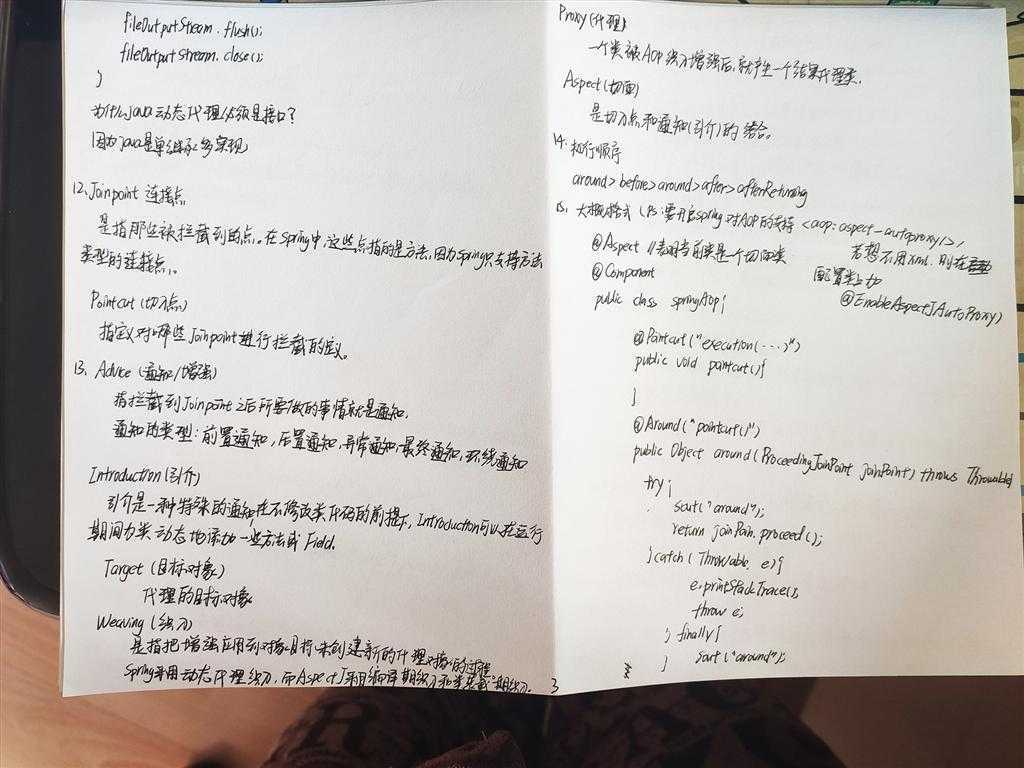 fileOutputStream.flush();
fileOutputStream.close();
}
为什么java动态代理必须是接口?
因为java是单继承多实现
12、Joinpoint 连接点
是指那些被拦截到的点。在Spring中,这些点指的是方法,因为Spring只支持方法
类型的连接点。
Pointcut (切入点)
指定对哪些Joinpoint进行拦截的定义。
13、Advice (通知/增强)
指拦截到Joinpoint之后所要做的事情就是通知。
通知的类型:前置通知,后置通知,异常通知,最终通知,环绕通知
Introduction (引介)
引介是一种特殊的通知在不修改类代码的前提下,Introduction可以在运行
期间为类动态地添加一些方法或Field.
Target (目标对象)
代理的目标对象
Weaving (织入)
是指把增强应用到对象目标来创建新的代理对象的过程
Spring采用动态代理织入,而AspectJ采用编译期织入和类装载期织入.
3
Proxy (代理)
一个类被AOP织入增强后,就产生一个结果代理类.
Aspect (切面)
是切入点和通知(引介)的结合。
14、执行顺序
around>before>around>after>afterReturning
15、大概格式 (Ps:要开启spring对AOP的支持 <aop:aspect-autoproxy/>,
@Aspect //表明当前类是一个切面类 若想不用xml,则在
@Component 配置类上加
public class springAop{ @EnableAspectJAutoProxy)
@Pointcut("execution(...)")
public void pointcut(){
}
@Around("pointcut()")
public Object around(ProceedingJoinPoint joinPoint) throws Throwable{
try{
sout("around");
return joinPoin.proceed();
}catch(Throwable e){
e.printStackTrace();
throw e;
} finally{
sout("around");
}
}